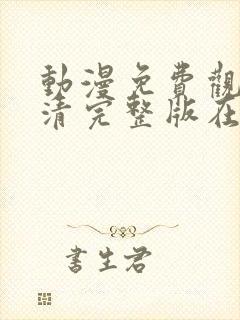 動漫免費觀
清完整版在
書生君